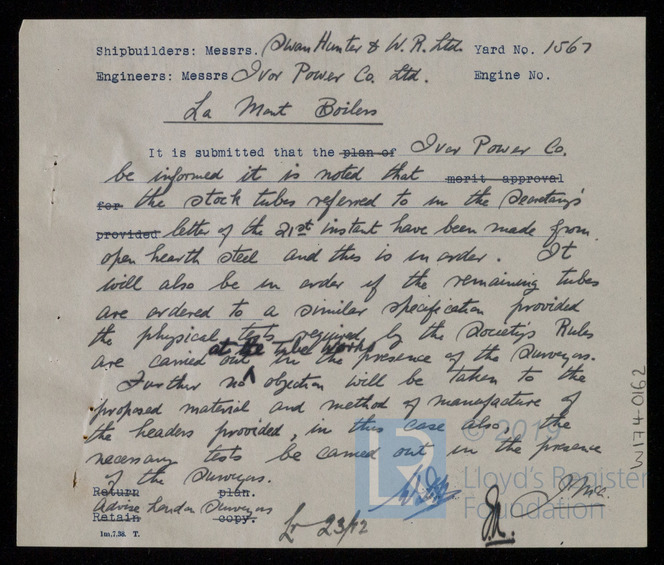 Shipbuilders: Messrs. Swan Hunter & W. R. Ltd. Yard No. 1567
Engineers: Messrs Ivor Power Co. Ltd. Engine No.
La Mont Boilers
It is submitted that the plan of Ivor Power Co.
be informed it is noted that merit approval
for the stock tubes referred to in the Secretary's
provided letter of the 21st instant have been made from
open hearth steel and this is in order. It
will also be in order if the remaining tubes
are ordered to a similar specification provided
the physical tests required by the Society's Rules
at the tube works
are carried out in the presence of the Surveyors.
Further no objection will be taken to the
proposed material and method of manufacture of
the headers provided, in this case also, the
necessary tests be carried out in the presence
of the Surveyors.
Return plan.
Advise London Surveyors
Retain copy.
1m,7.38. T.
23/12
W174-0162
© 2019
Lloyd's Register
Foundation